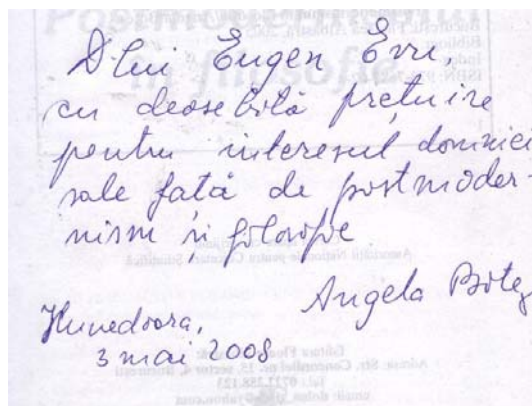 Dlui Eugen Evu,
cu deosebită prețuire
pentru interesul domniei
sale față de postmoder-
nism și filosofie
Angela Botez
Hunedoara,
3 mai 2008